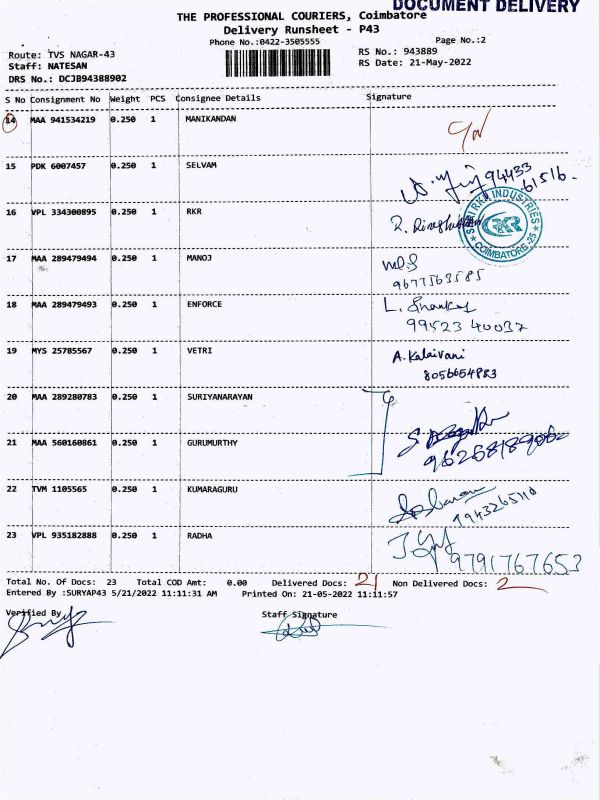 DOCUMENT DELIVERY
THE PROFESSIONAL COURIERS, Coimbatore
Delivery Runsheet - P43
Phone No.:0422-3505555
Page No.:2
Route: TVS NAGAR-43
RS No.: 943889
Staff: NATESAN
RS Date: 21-May-2022
DRS No.: DCJB94388902
S No Consignment No Weight PCS Consignee Details Signature
14 MAA 941534219 0.250 1 MANIKANDAN
15 PDK 6007457 0.250 1 SELVAM
94433
61516
16 VPL 334300895 0.250 1 RKR
SRI RKR INDUSTRIES
RKR
COIMBATORE-25
17 MAA 289479494 0.250 1 MANOJ
9677563585
18 MAA 289479493 0.250 1 ENFORCE
L. Shankar
99523 40037
19 MYS 25785567 0.250 1 VETRI
A. Kalaivani
8056654983
20 MAA 289280783 0.250 1 SURIYANARAYAN
21 MAA 560160861 0.250 1 GURUMURTHY
22 TVM 1105565 0.250 1 KUMARAGURU
23 VPL 935182888 0.250 1 RADHA
9791767653
Total No. Of Docs: 23 Total COD Amt: 0.00 Delivered Docs: 21 Non Delivered Docs: 2
Entered By :SURYAP43 5/21/2022 11:11:31 AM Printed On: 21-05-2022 11:11:57
Verified By
Staff Signature